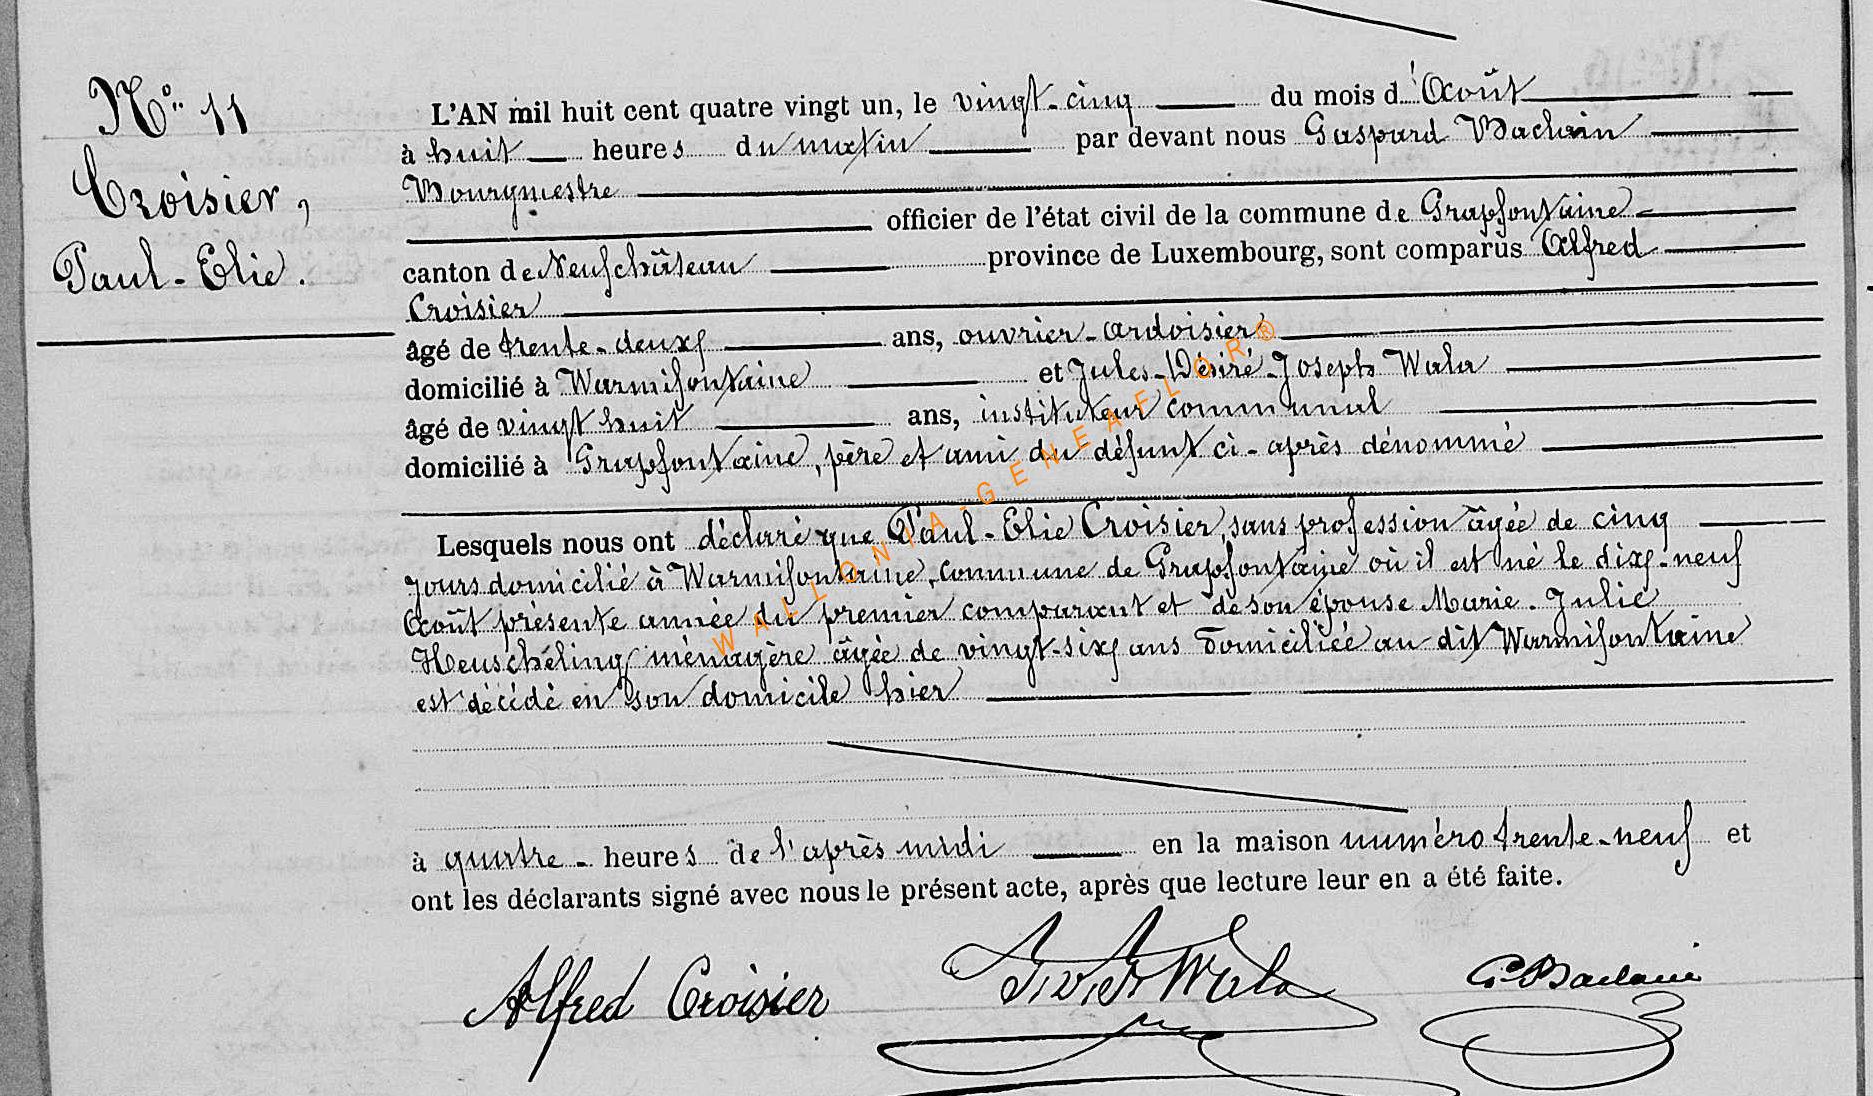 N° 11
Croisier,
Paul-Elie.
L'AN mil huit cent quatre vingt un, le vingt-cinq du mois d'Août
à huit heures du matin par devant nous Gaspard Baclain
Bourgmestre
officier de l'état civil de la commune de Grapfontaine
canton de Neufchâteau province de Luxembourg, sont comparus Alfred
Croisier
âgé de trente-deux ans, ouvrier-ardoisier
domicilié à Warmifontaine et Jules-Désiré-Joseph Wala
âgé de vingt huit ans, instituteur communal
domicilié à Grapfontaine, père et ami du défunt ci-après dénommé
Lesquels nous ont déclaré que Paul-Elie Croisier, sans profession âgée de cinq
jours domicilié à Warmifontaine, commune de Grapfontaine où il est né le dix-neuf
Août présente année du premier comparant et de son épouse Marie-Julie
Heuschéling ménagère âgée de vingt-six ans domiciliée au dit Warmifontaine
est décédé en son domicile hier
à quatre - heures de l'après midi en la maison numéro trente-neuf et
ont les déclarants signé avec nous le présent acte, après que lecture leur en a été faite.
Alfred Croisier Wala G Baclain
WALLONIA-GENEAFLOR®